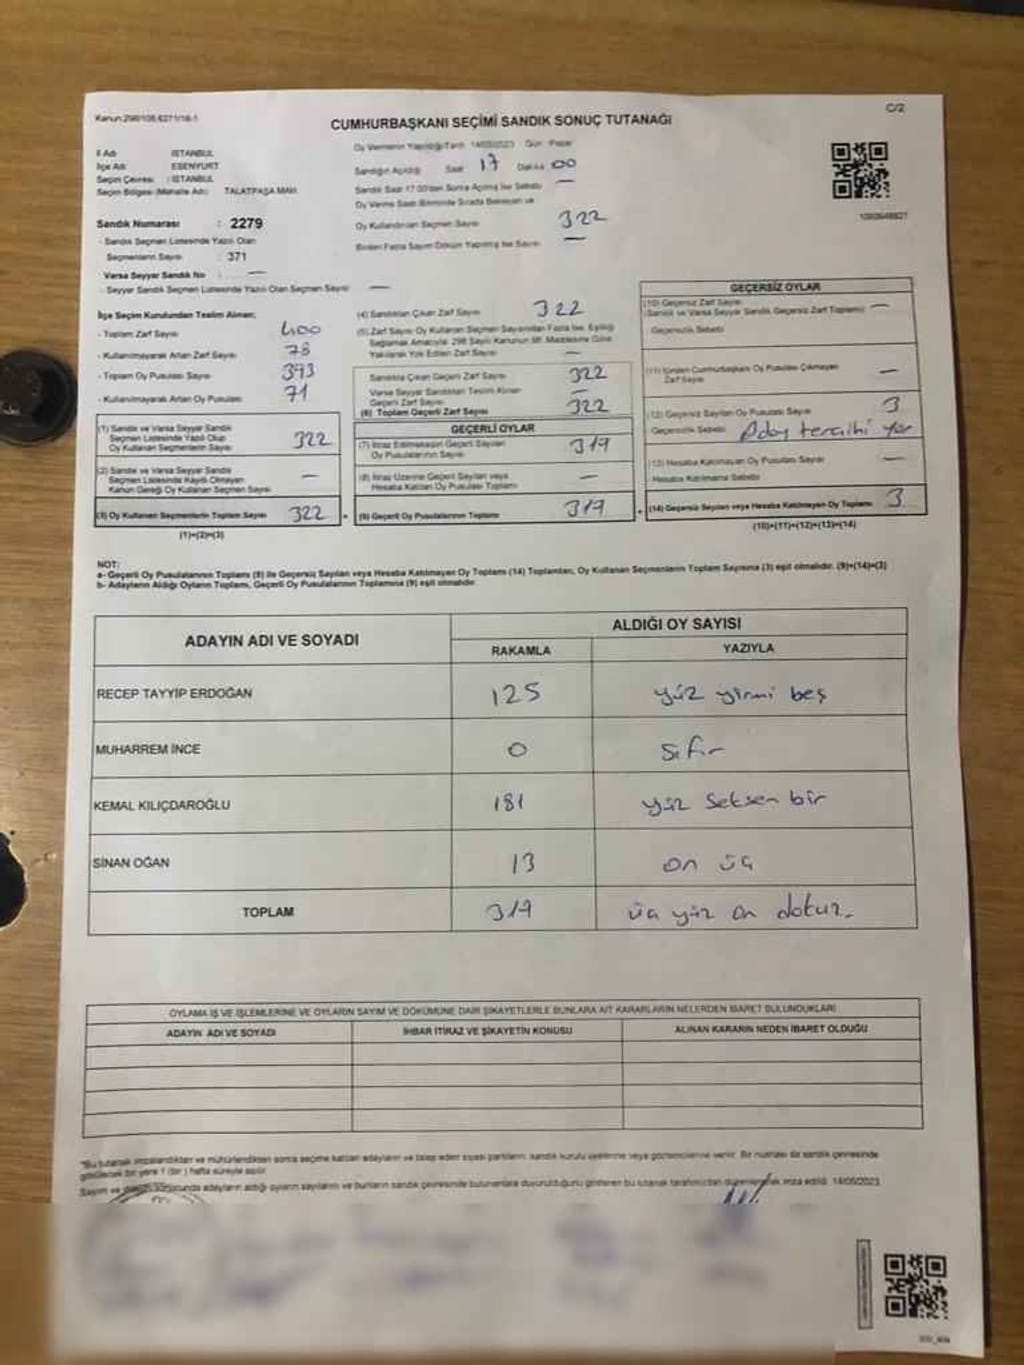 Kanun:298/105,6271/18-1
C/2
CUMHURBAŞKANI SEÇİMİ SANDIK SONUÇ TUTANAĞI
İl Adı : İSTANBUL
İlçe Adı : ESENYURT
Seçim Çevresi : İSTANBUL
Seçim Bölgesi (Mahalle Adı) : TALATPAŞA MAH.
Sandık Numarası : 2279
- Sandık Seçmen Listesinde Yazılı Olan
Seçmenlerin Sayısı : 371
Varsa Seyyar Sandık No : —
- Seyyar Sandık Seçmen Listesinde Yazılı Olan Seçmen Sayısı —
Oy Vermenin Yapıldığı Tarih 14/05/2023 Gün Pazar
Sandığın Açıldığı Saat 17 Dakika 00
Sandık Saat 17:00'den Sonra Açılmış İse Sebebi —
Oy Verme Saati Bitiminde Sırada Bekleyen ve
Oy Kullandırılan Seçmen Sayısı 322
Birden Fazla Sayım Döküm Yapılmış İse Sayısı —
İlçe Seçim Kurulundan Teslim Alınan;
- Toplam Zarf Sayısı 400
- Kullanılmayarak Artan Zarf Sayısı 78
- Toplam Oy Pusulası Sayısı 393
- Kullanılmayarak Artan Oy Pusulası 71
(1) Sandık ve Varsa Seyyar Sandık
Seçmen Listesinde Yazılı Olup
Oy Kullanan Seçmenlerin Sayısı 322
(2) Sandık ve Varsa Seyyar Sandık
Seçmen Listesinde Kayıtlı Olmayan
Kanun Gereği Oy Kullanan Seçmen Sayısı —
(3) Oy Kullanan Seçmenlerin Toplam Sayısı 322
(1)+(2)=(3)
(4) Sandıktan Çıkan Zarf Sayısı 322
(5) Zarf Sayısı Oy Kullanan Seçmen Sayısından Fazla İse, Eşitliği
Sağlamak Amacıyla 298 Sayılı Kanunun 98. Maddesine Göre
Yakılarak Yok Edilen Zarf Sayısı —
Sandıkta Çıkan Geçerli Zarf Sayısı 322
Varsa Seyyar Sandıktan Teslim Alınan
Geçerli Zarf Sayısı —
(6) Toplam Geçerli Zarf Sayısı 322
GEÇERLİ OYLAR
(7) İtiraz Edilmeksizin Geçerli Sayılan
Oy Pusulalarının Sayısı 319
(8) İtiraz Üzerine Geçerli Sayılan veya
Hesaba Katılan Oy Pusulası Toplamı —
(9) Geçerli Oy Pusulalarının Toplamı 319
GEÇERSİZ OYLAR
(10) Geçersiz Zarf Sayısı
(Sandık ve Varsa Seyyar Sandık Geçersiz Zarf Toplamı) —
Geçersizlik Sebebi
(11) İçinden Cumhurbaşkanı Oy Pusulası Çıkmayan
Zarf Sayısı —
(12) Geçersiz Sayılan Oy Pusulası Sayısı 3
Geçersizlik Sebebi Aday tercihi yok
(13) Hesaba Katılmayan Oy Pusulası Sayısı —
Hesaba Katılmama Sebebi
(14) Geçersiz Sayılan veya Hesaba Katılmayan Oy Toplamı 3
(10)+(11)+(12)+(13)=(14)
NOT:
a- Geçerli Oy Pusulalarının Toplamı (9) ile Geçersiz Sayılan veya Hesaba Katılmayan Oy Toplamı (14) Toplamları, Oy Kullanan Seçmenlerin Toplam Sayısına (3) eşit olmalıdır. (9)+(14)=(3)
b- Adayların Aldığı Oyların Toplamı, Geçerli Oy Pusulalarının Toplamına (9) eşit olmalıdır.
ADAYIN ADI VE SOYADI
ALDIĞI OY SAYISI
RAKAMLA YAZIYLA
RECEP TAYYİP ERDOĞAN 125 yüz yirmi beş
MUHARREM İNCE 0 sıfır
KEMAL KILIÇDAROĞLU 181 yüz seksen bir
SİNAN OĞAN 13 on üç
TOPLAM 319 üç yüz on dokuz.
OYLAMA İŞ VE İŞLEMLERİNE VE OYLARIN SAYIM VE DÖKÜMÜNE DAİR ŞİKAYETLERLE BUNLARA AİT KARARLARIN NELERDEN İBARET BULUNDUKLARI
ADAYIN ADI VE SOYADI İHBAR İTİRAZ VE ŞİKAYETİN KONUSU ALINAN KARARIN NEDEN İBARET OLDUĞU
"Bu tutanak imzalandıktan ve mühürlendikten sonra seçime katılan adayların ve talep eden siyasi partilerin, sandık kurulu üyelerine veya gözlemcilerine verilir. Bir nüshası da sandık çevresinde
görülecek bir yere 1 (bir ) hafta süreyle asılır.
Sayım ve döküm sonucunda adayların aldığı oyların sayılarını ve bunların sandık çevresinde bulunanlara duyurulduğunu gösteren bu tutanak tarafımızdan düzenlenerek imza edildi. 14/05/2023